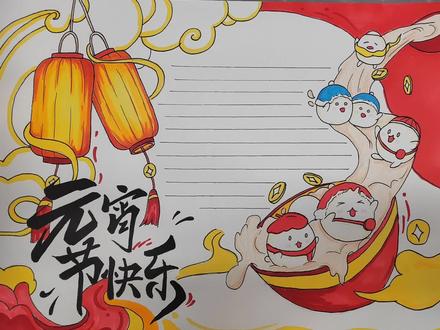 元宵
节快乐